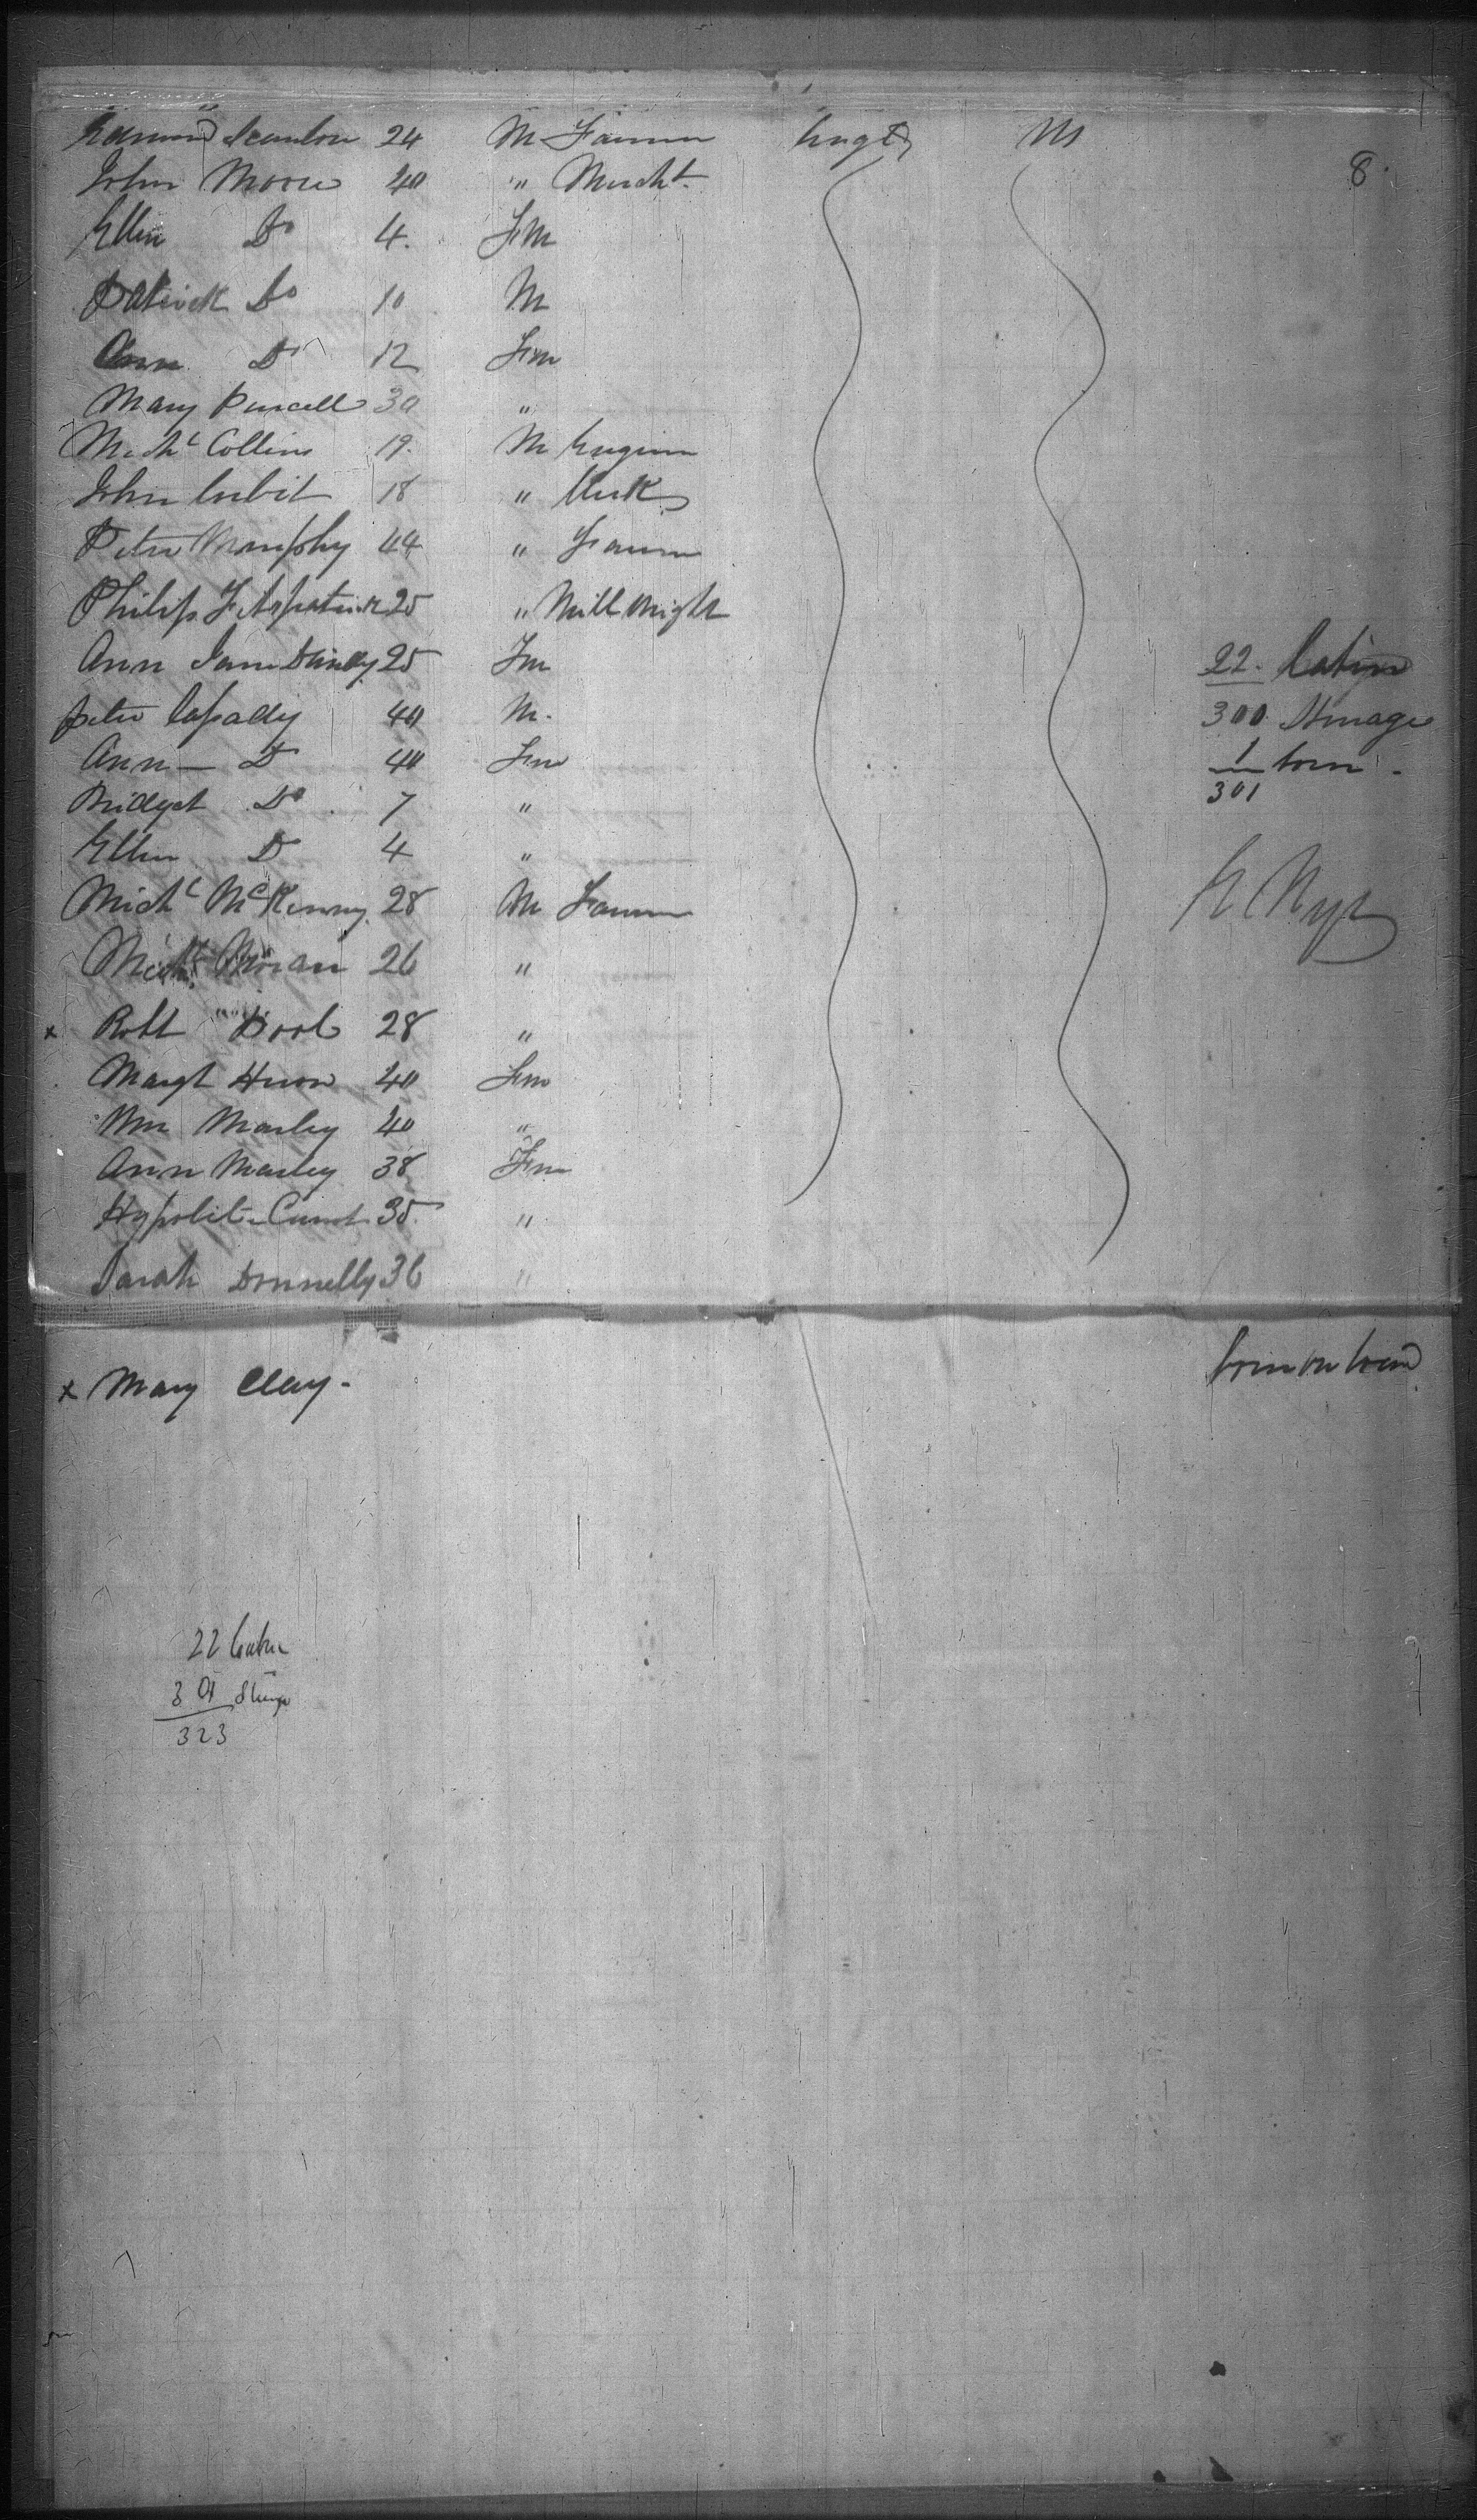 Edmund Scanlon 24 M Farmer Engld US
8.
John Moore 40 " Mercht.
Ellen Do 4. Fm
Patrick Do 10 M
Ann Do 12 Fm
Mary Purcell 30 "
Michl Collins 19. M
John Corbit 18 " Clerk
Peter Murphy 44 " Farmer
Philip Fitzpatrick 25 " Mill wright
Ann Jane 25 Fm
22. Cabin
Peter Casady 40 M.
300 Steerage
Ann — Do 40 Fm
1 born.
Bridget Do 7 "
301
Ellen Do 4 "
Michl McKenny 28 M Farmer
Michl Moran 26 "
x Robt 28 "
Margt 40 Fm
Wm Marley 40 "
Ann Marley 38 Fm
Hypolite 35. "
Sarah Donnelly 36 "
x Mary Clay - born on board
22 Cabin
301 Steerge
323